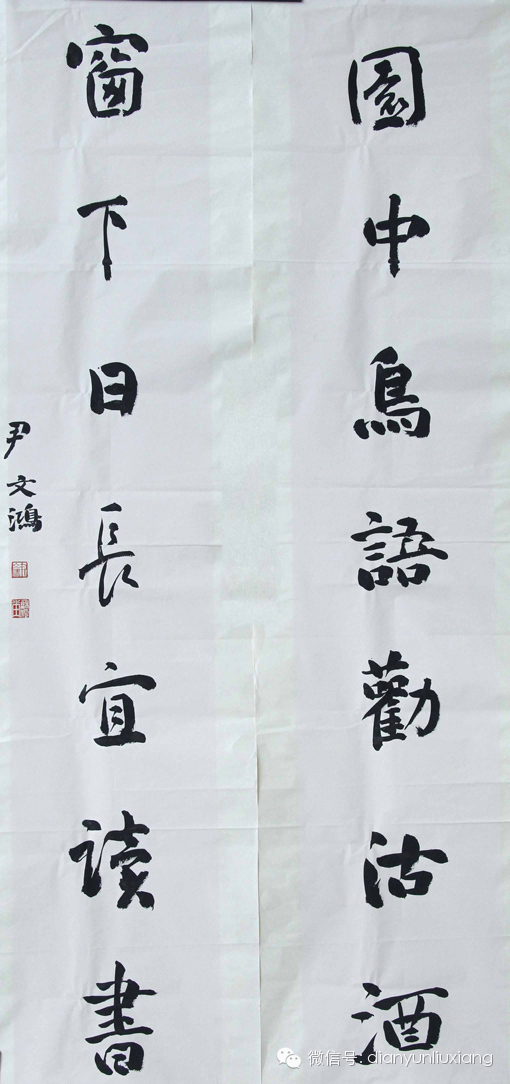 園中鳥語勸沽酒
窗下日長宜读書
尹文鴻
微信号: dianyunliuxiang